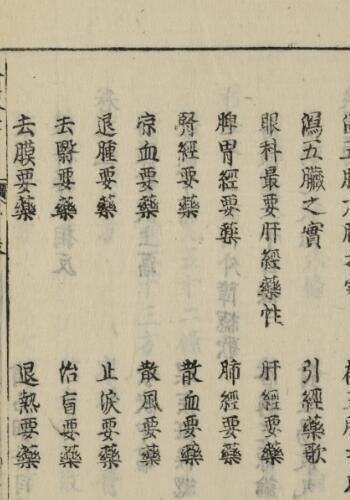 瀉五臟之實
引經藥歌
眼科最要肝經藥性
肝經要藥
脾胃經要藥
肺經要藥
腎經要藥
散血要藥
凉血要藥
散風要藥
退腫要藥
止淚要藥
去翳要藥
治盲要藥
去膜要藥
退熱要藥